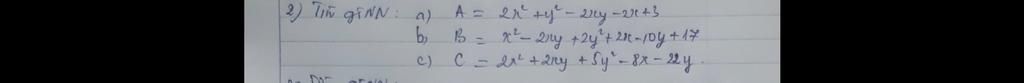 2) Tìm GTNN: a) A = 2x² + y² - 2xy - 2x + 3
b) B = x² - 2xy + 2y² + 2x - 10y + 17
c) C = 2x² + 2xy + 5y² - 8x - 22y.